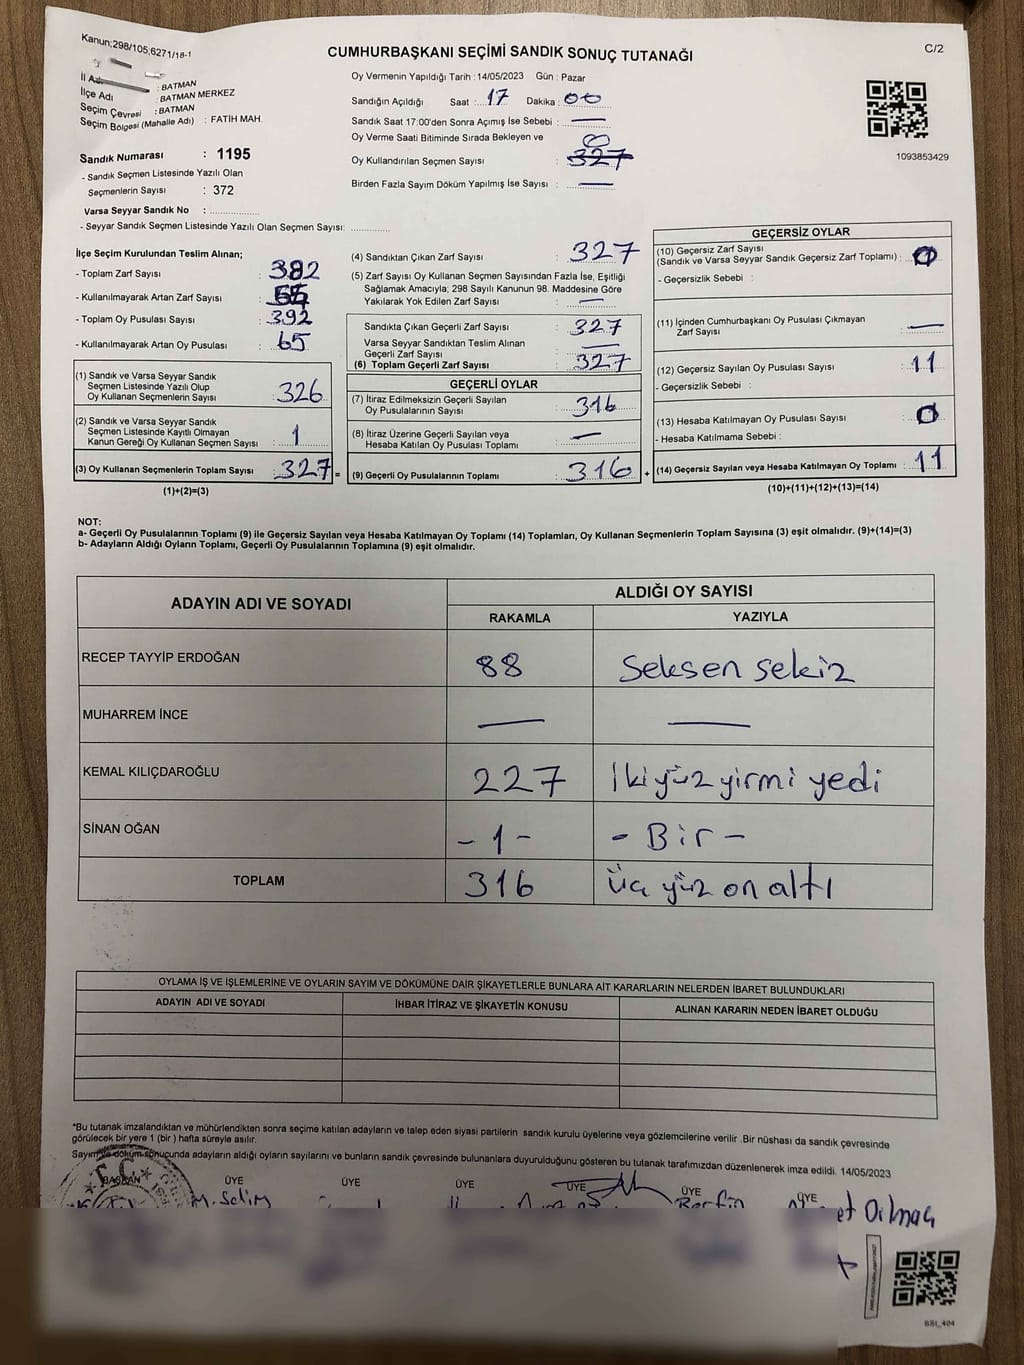 Kanun;298/105;6271/18-1
CUMHURBAŞKANI SEÇİMİ SANDIK SONUÇ TUTANAĞI
C/2
İl Adı : BATMAN
İlçe Adı : BATMAN MERKEZ
Seçim Çevresi : BATMAN
Seçim Bölgesi (Mahalle Adı) : FATİH MAH.
Sandık Numarası : 1195
- Sandık Seçmen Listesinde Yazılı Olan
Seçmenlerin Sayısı : 372
Varsa Seyyar Sandık No :
- Seyyar Sandık Seçmen Listesinde Yazılı Olan Seçmen Sayısı:
Oy Vermenin Yapıldığı Tarih : 14/05/2023 Gün : Pazar
Sandığın Açıldığı Saat : 17 Dakika : 00
Sandık Saat 17:00'den Sonra Açımış İse Sebebi : —
Oy Verme Saati Bitiminde Sırada Bekleyen ve
Oy Kullandırılan Seçmen Sayısı : 327
Birden Fazla Sayım Döküm Yapılmış İse Sayısı : —
1093853429
İlçe Seçim Kurulundan Teslim Alınan;
- Toplam Zarf Sayısı :
- Kullanılmayarak Artan Zarf Sayısı :
- Toplam Oy Pusulası Sayısı : 392
- Kullanılmayarak Artan Oy Pusulası : 65
(1) Sandık ve Varsa Seyyar Sandık
Seçmen Listesinde Yazılı Olup
Oy Kullanan Seçmenlerin Sayısı : 326
(2) Sandık ve Varsa Seyyar Sandık
Seçmen Listesinde Kayıtlı Olmayan
Kanun Gereği Oy Kullanan Seçmen Sayısı : 1
(3) Oy Kullanan Seçmenlerin Toplam Sayısı : 327 =
(1)+(2)=(3)
(4) Sandıktan Çıkan Zarf Sayısı : 327
(5) Zarf Sayısı Oy Kullanan Seçmen Sayısından Fazla İse, Eşitliği
Sağlamak Amacıyla; 298 Sayılı Kanunun 98. Maddesine Göre
Yakılarak Yok Edilen Zarf Sayısı : —
Sandıkta Çıkan Geçerli Zarf Sayısı : 327
Varsa Seyyar Sandıktan Teslim Alınan
Geçerli Zarf Sayısı : —
(6) Toplam Geçerli Zarf Sayısı : 327
GEÇERLİ OYLAR
(7) İtiraz Edilmeksizin Geçerli Sayılan
Oy Pusulalarının Sayısı : 316
(8) İtiraz Üzerine Geçerli Sayılan veya
Hesaba Katılan Oy Pusulası Toplamı : —
(9) Geçerli Oy Pusulalarının Toplamı : 316 +
GEÇERSİZ OYLAR
(10) Geçersiz Zarf Sayısı
(Sandık ve Varsa Seyyar Sandık Geçersiz Zarf Toplamı) : 0
- Geçersizlik Sebebi :
(11) İçinden Cumhurbaşkanı Oy Pusulası Çıkmayan
Zarf Sayısı : —
(12) Geçersiz Sayılan Oy Pusulası Sayısı : 11
- Geçersizlik Sebebi :
(13) Hesaba Katılmayan Oy Pusulası Sayısı : 0
- Hesaba Katılmama Sebebi :
(14) Geçersiz Sayılan veya Hesaba Katılmayan Oy Toplamı : 11
(10)+(11)+(12)+(13)=(14)
NOT:
a- Geçerli Oy Pusulalarının Toplamı (9) ile Geçersiz Sayılan veya Hesaba Katılmayan Oy Toplamı (14) Toplamları, Oy Kullanan Seçmenlerin Toplam Sayısına (3) eşit olmalıdır. (9)+(14)=(3)
b- Adayların Aldığı Oyların Toplamı, Geçerli Oy Pusulalarının Toplamına (9) eşit olmalıdır.
ADAYIN ADI VE SOYADI ALDIĞI OY SAYISI
RAKAMLA YAZIYLA
RECEP TAYYİP ERDOĞAN 88 Seksen sekiz
MUHARREM İNCE — —
KEMAL KILIÇDAROĞLU 227 İkiyüz yirmi yedi
SİNAN OĞAN -1- - Bir -
TOPLAM 316 üç yüz on altı
OYLAMA İŞ VE İŞLEMLERİNE VE OYLARIN SAYIM VE DÖKÜMÜNE DAİR ŞİKAYETLERLE BUNLARA AİT KARARLARIN NELERDEN İBARET BULUNDUKLARI
ADAYIN ADI VE SOYADI İHBAR İTİRAZ VE ŞİKAYETİN KONUSU ALINAN KARARIN NEDEN İBARET OLDUĞU
*Bu tutanak imzalandıktan ve mühürlendikten sonra seçime katılan adayların ve talep eden siyasi partilerin sandık kurulu üyelerine veya gözlemcilerine verilir .Bir nüshası da sandık çevresinde
görülecek bir yere 1 (bir ) hafta süreyle asılır.
Sayım ve döküm sonucunda adayların aldığı oyların sayılarını ve bunların sandık çevresinde bulunanlara duyurulduğunu gösteren bu tutanak tarafımızdan düzenlenerek imza edildi. 14/05/2023
BAŞKAN ÜYE ÜYE ÜYE ÜYE ÜYE ÜYE
T.C. M. Selim Berfin